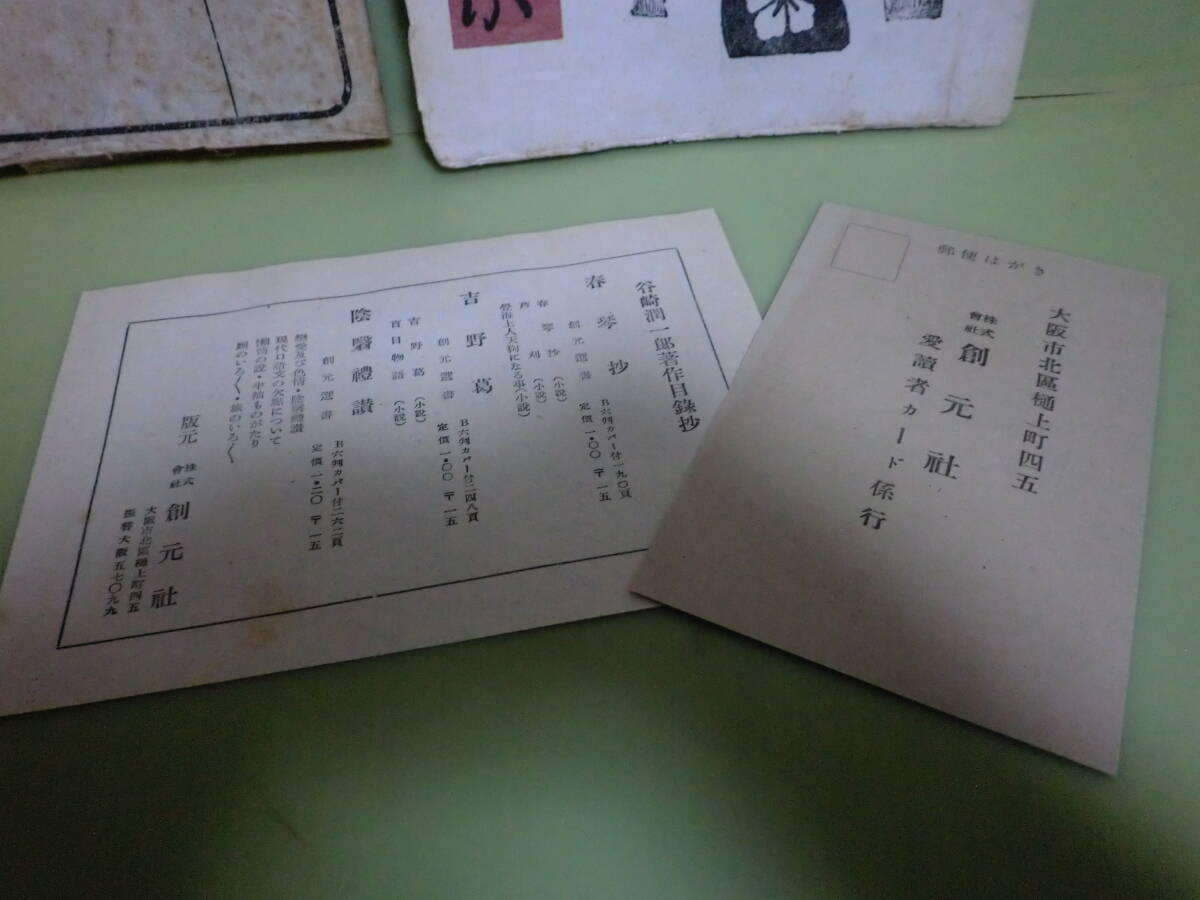 谷崎潤一郎著作目錄抄
春琴抄
創元選書 B六判カバー付一九〇頁 定價一・〇〇 〒一五
春琴抄(小說)
蘆刈(小說)
覺海上人天狗になる事(小說)
吉野葛
創元選書 B六判カバー付二四八頁 定價一・〇〇 〒一五
吉野葛(小說)
盲目物語(小說)
陰翳禮讃
創元選書 B六判カバー付二六二頁 定價一・二〇 〒一五
戀愛及び色情・陰翳禮讃
現代口語文の欠點について
懶惰の說・半袖ものがたり
厠のいろ〱・旅のいろ〱
版元 株式會社 創元社
大阪市北區樋上町四五
振替大阪五七〇九九
郵便はがき
大阪市北區樋上町四五
株式會社 創元社
愛讀者カード係行